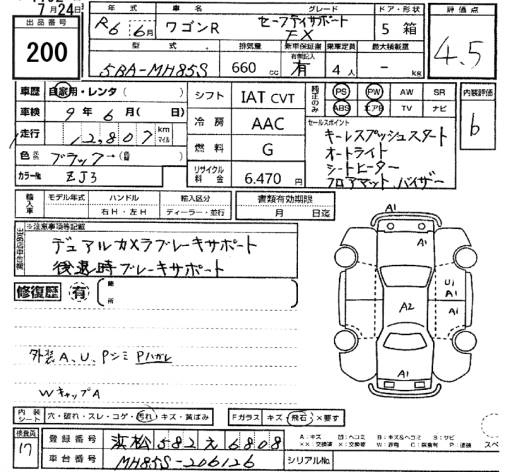 7月24日
出品番号
200
年式
車名
グレード
ドア・形状
評価点
R6 6月
ワゴンR
セーフティサポート
FX
5 箱
4.5
型式
排気量
新車保証書
乗車定員
最大積載量
5BA-MH85S
660 cc
有
4人
- kg
車歴 自家用・レンタ ( )
シフト IAT CVT
純正のみ PS PW AW SR
ABS エアB TV ナビ
内装評価
b
車検 9年6月( 日)
冷房 AAC
セールスポイント
走行 12,807 km マイル
キーレスプッシュスタート
オートライト
シートヒーター
フロアマット、バイザー
色 ブラック→(
燃料 G
カラー№ ZJ3
リサイクル料金 6.470 円
輸入車
モデル年式
ハンドル
輸入区分
書類有効期限
右H・左H
ディーラー・並行
月 日迄
※注意事項等記載
デュアルカメラブレーキサポート
後退時ブレーキサポート
修復歴 有 箇所
外装 A、U、Pンミ Pハガレ
WキャップA
A1
A1
U1
A1
A2
A1
A1
内装シート 穴・破れ・スレ・コゲ・汚れ・キズ・黄ばみ
Fガラス キズ・飛石・×要す
検査員
17
登録番号 浜松582え6808
車台番号 MH85S-206126
シリアルNo.